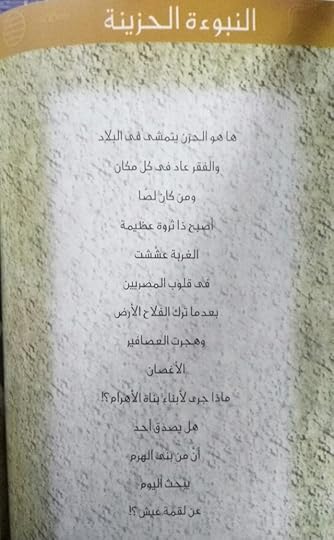 النبوءة الحزينة
ها هو الحزن يتمشى فى البلاد
والفقر عاد فى كل مكان
ومن كان لصًا
أصبح ذا ثروة عظيمة
الغربة عششت
فى قلوب المصريين
بعدما ترك الفلاح الأرض
وهجرت العصافير
الأغصان
ماذا جرى لأبناء بناة الأهرام؟!
هل يصدق أحد
أن من بنى الهرم
يبحث اليوم
عن لقمة عيش؟!